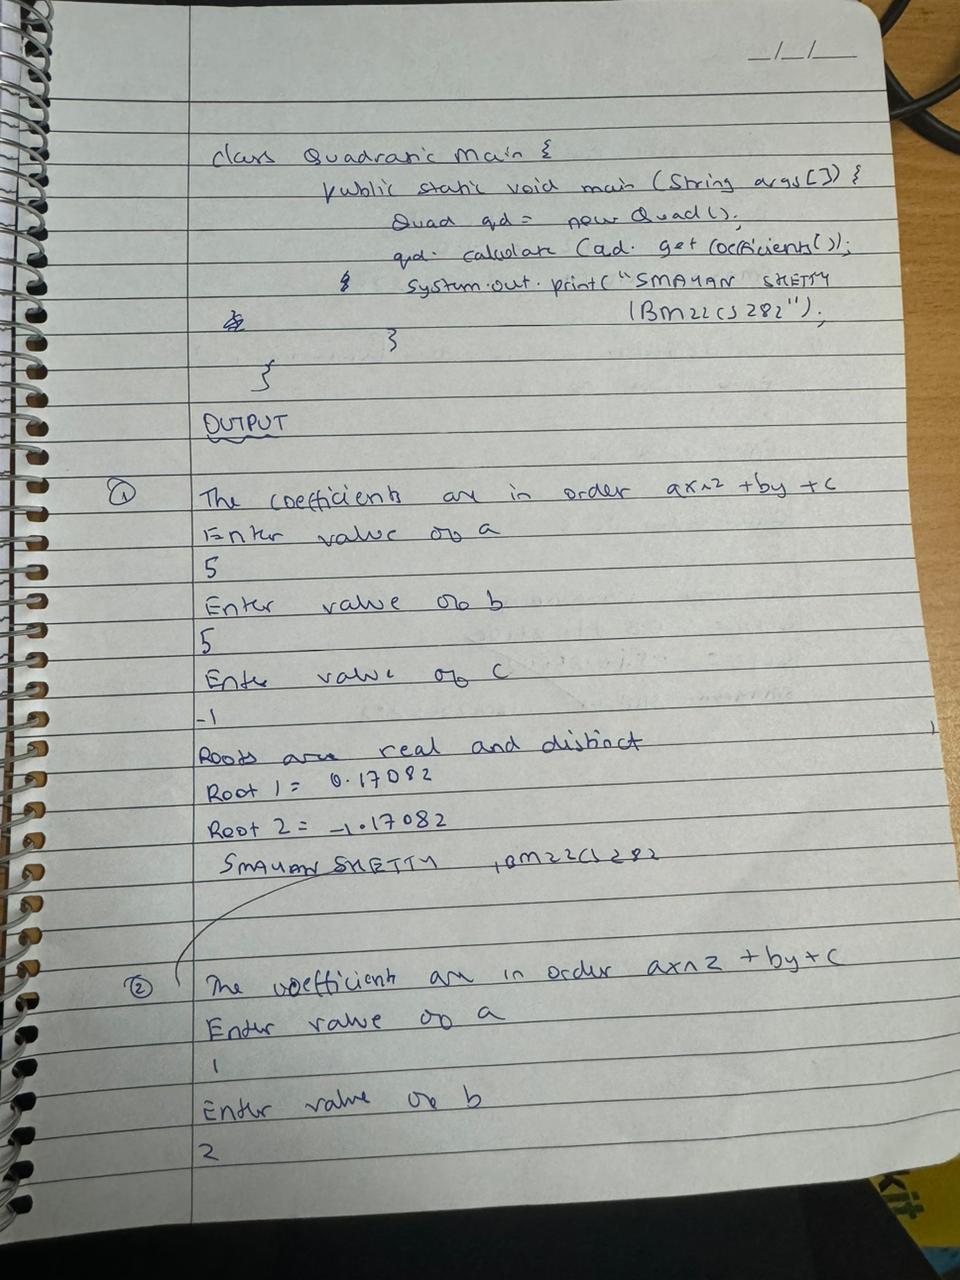 _/_/__
class Quadratic Main {
public static void main (String args[]) {
Quad qd = new Quad();
qd. calculate (qd. get Coefficients());
System.out.print("SMAYAN SHETTY
1BM22CS282");
}
}
OUTPUT
① The coefficients are in order ax^2 +by +c
Enter value of a
5
Enter value of b
5
Enter value of c
-1
Roots are real and distinct
Root 1 = 0.17082
Root 2 = -1.17082
SMAYAN SHETTY 1BM22CS282
② The coefficients are in order ax^2 +by+c
Enter value of a
1
Enter value of b
2
kit